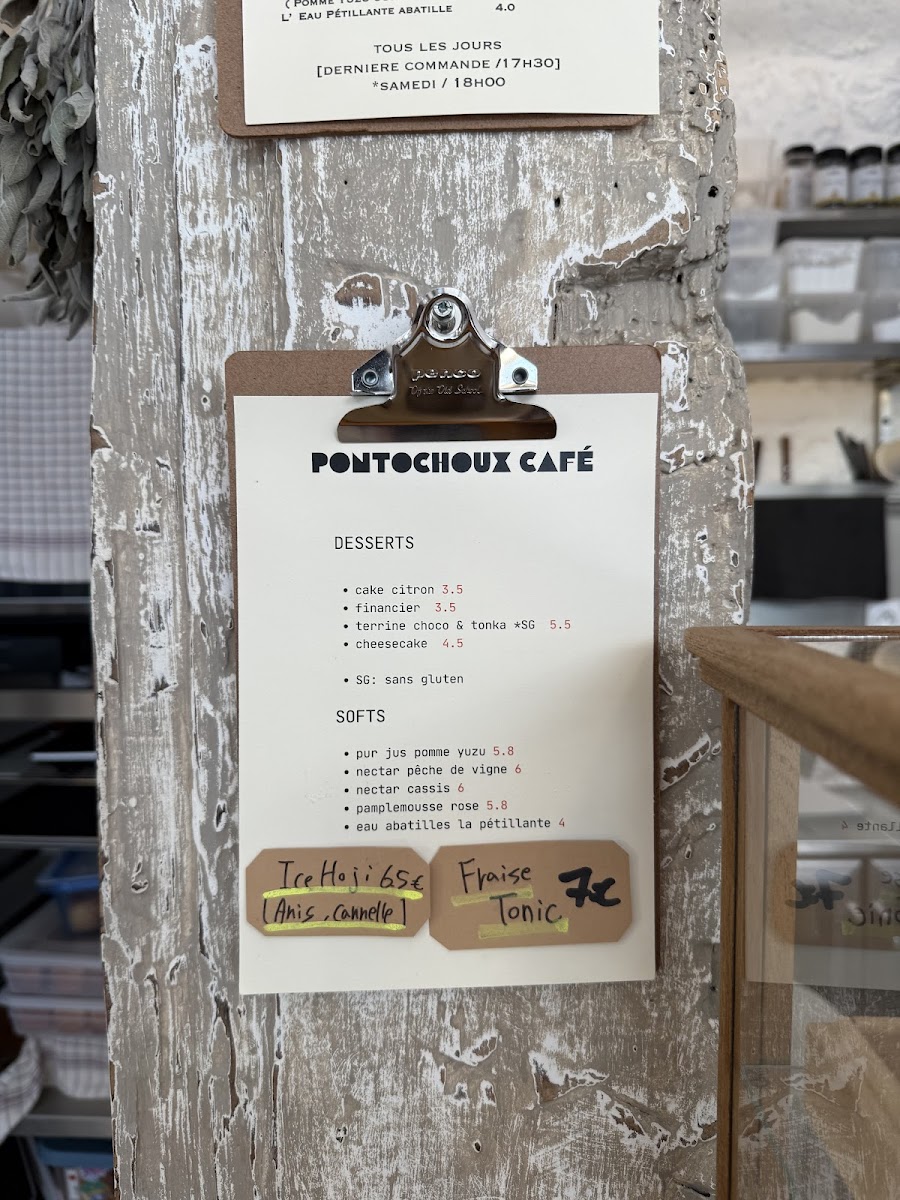 L' EAU PÉTILLANTE ABATILLE 4.0
TOUS LES JOURS
[DERNIERE COMMANDE /17H30]
*SAMEDI / 18H00
penco
PONTOCHOUX CAFÉ
DESSERTS
• cake citron 3.5
• financier 3.5
• terrine choco & tonka *SG 5.5
• cheesecake 4.5
• SG: sans gluten
SOFTS
• pur jus pomme yuzu 5.8
• nectar pêche de vigne 6
• nectar cassis 6
• pamplemousse rose 5.8
• eau abatilles la pétillante 4
Ice Hoji 6.5€
[Anis, Cannelle]
Fraise
Tonic 7€